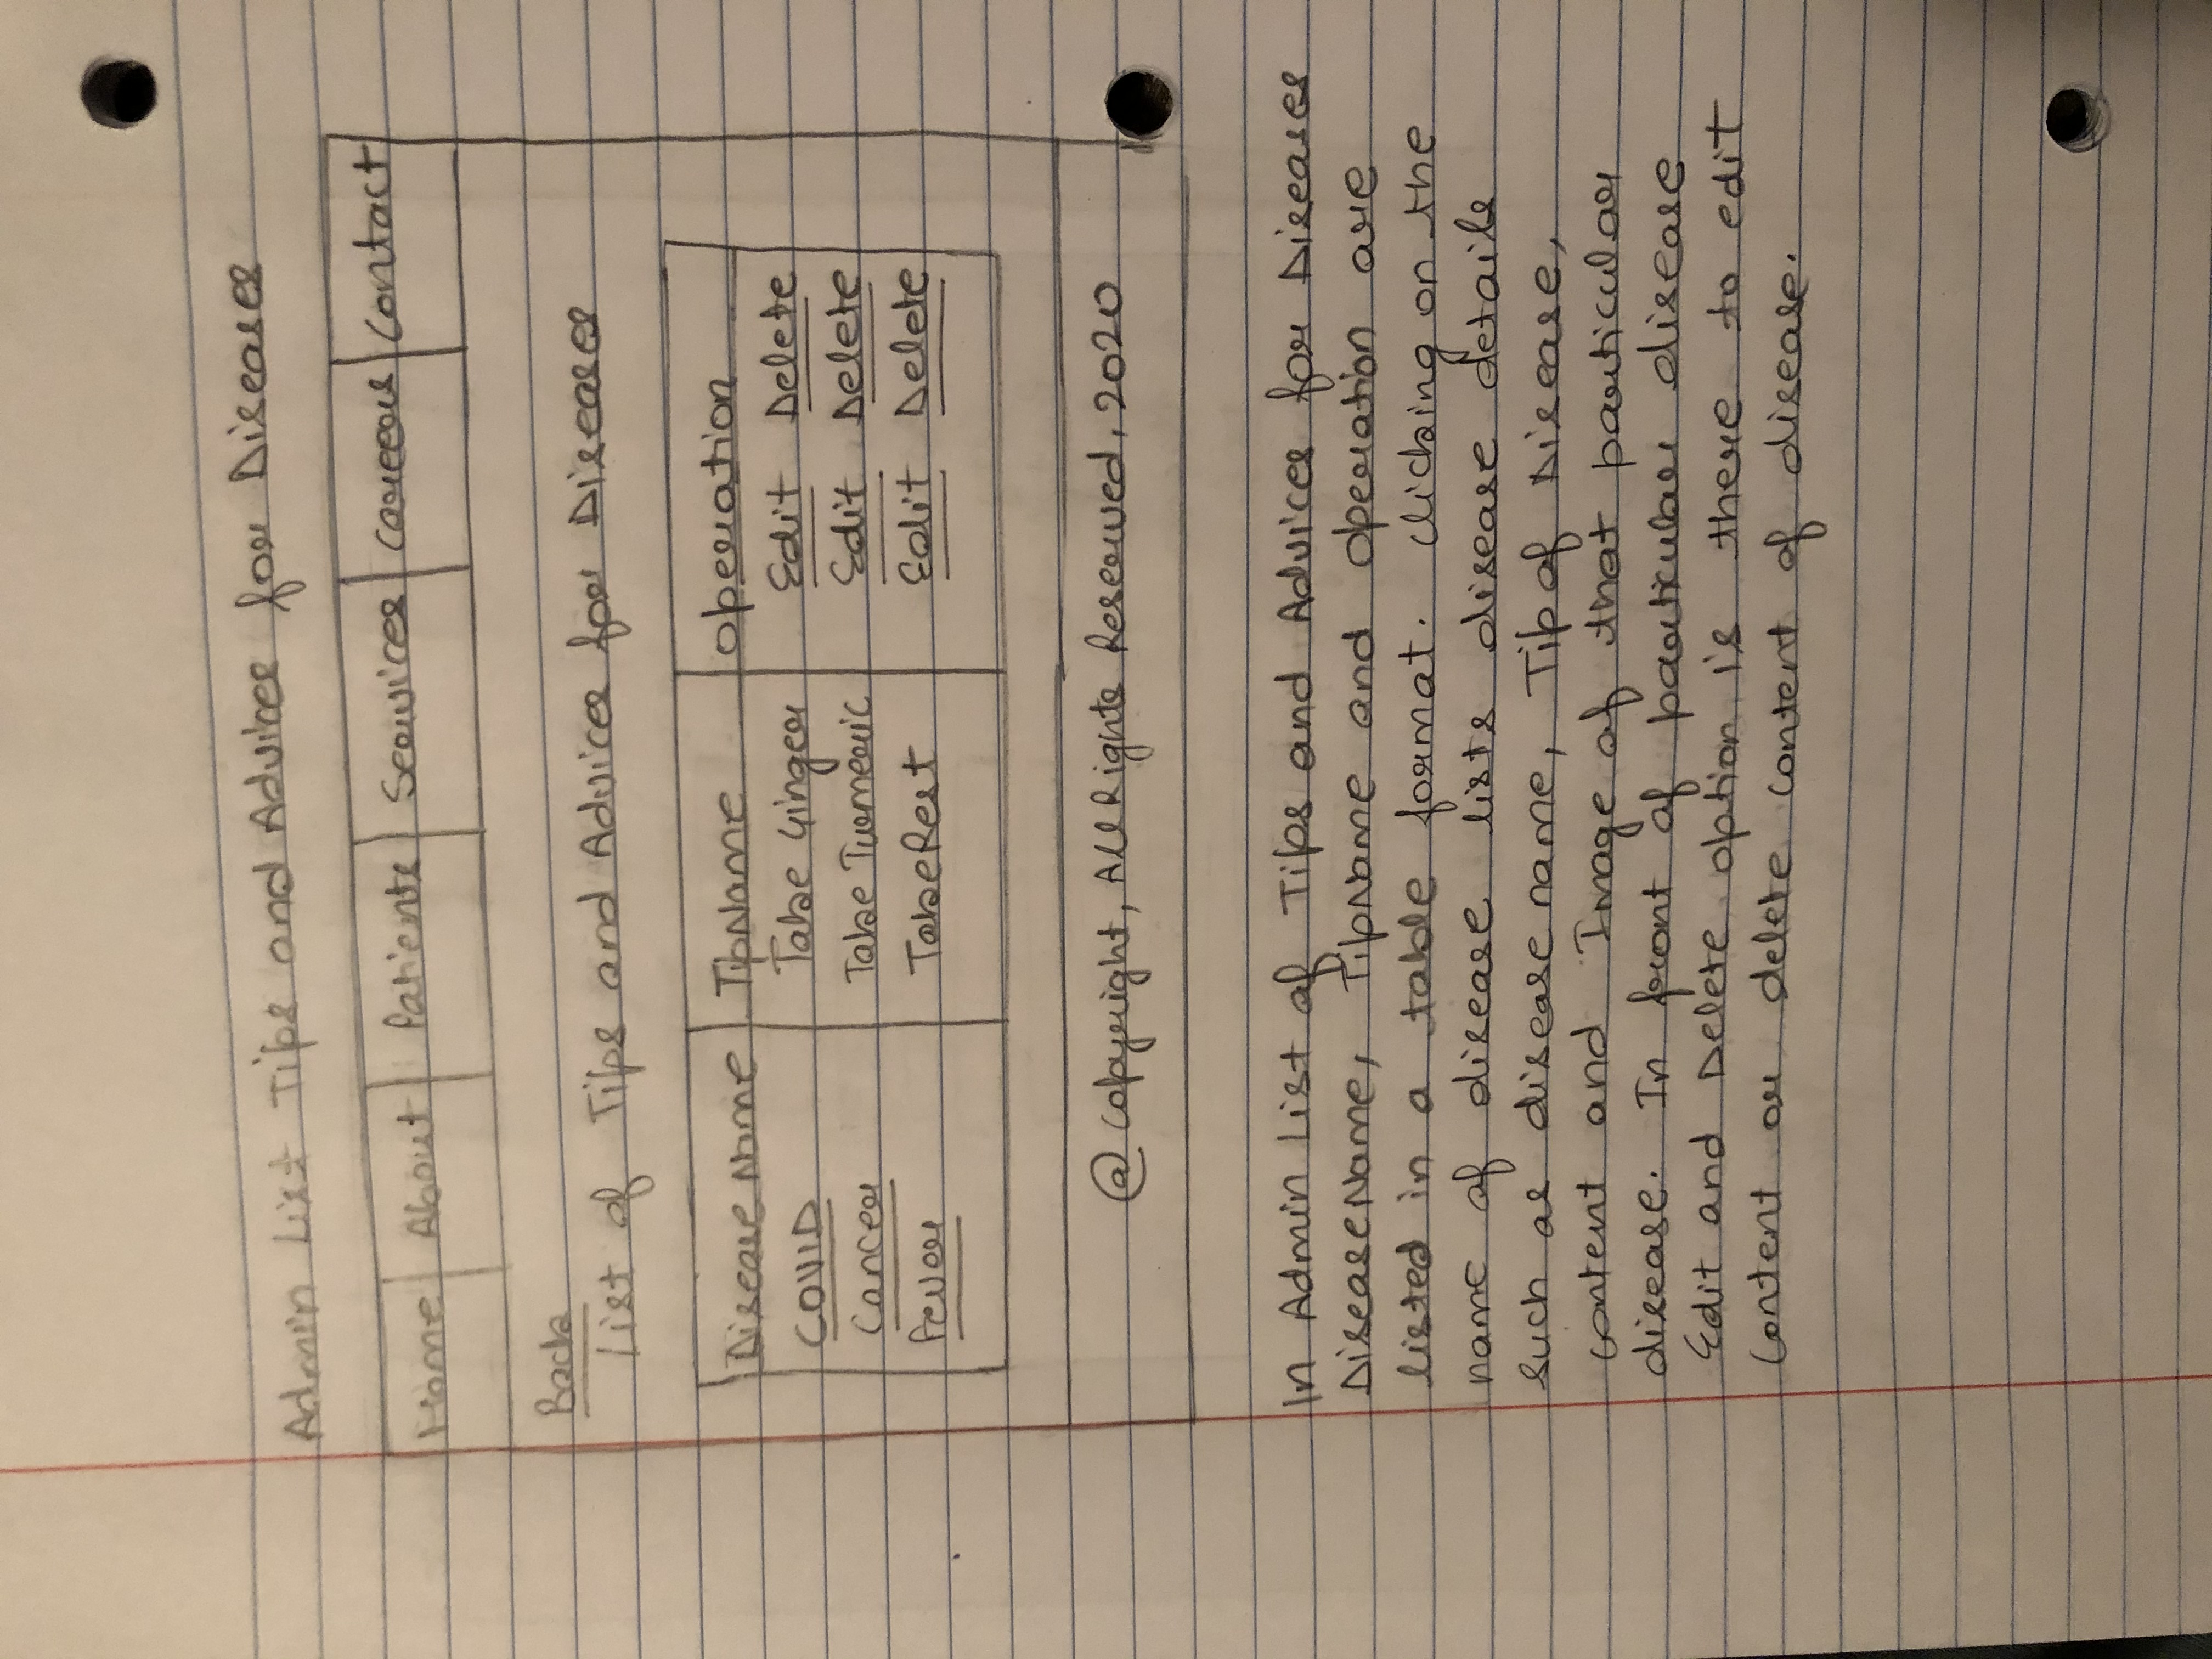 Admin List Tips and Advices for Diseases
Home About Patients Services Careers Contact
Back
List of Tips and Advices for Diseases
Disease Name TipName Operation
COVID Take Ginger Edit Delete
Cancer Take Turmeric Edit Delete
Fever TakeRest Edit Delete
@ Copyright, All Rights Reserved, 2020
In Admin List of Tips and Advices for Diseases
DiseaseName, TipName and Operation are
listed in a table format. Clicking on the
name of disease lists disease details
such as disease name, Tip of Disease,
content and Image of that particular
disease. In front of particular disease
Edit and Delete option is there to edit
content or delete content of disease.